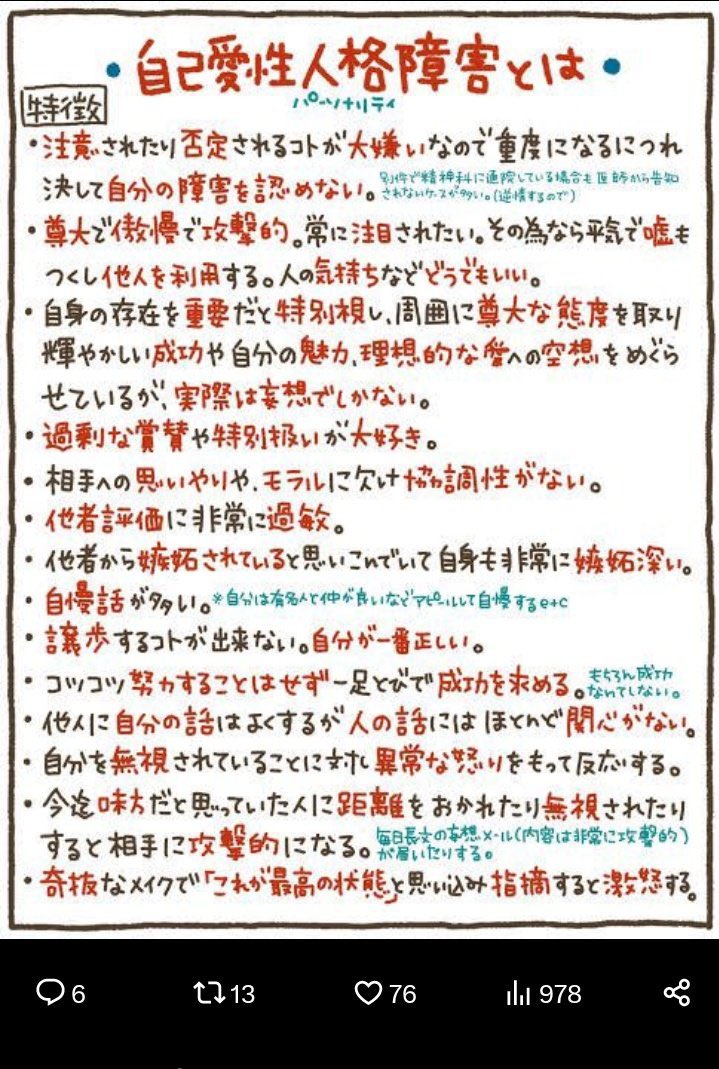 ・自己愛性人格障害とは・
パーソナリティ
特徴
・注意されたり否定されるコトが大嫌いなので重度になるにつれ
決して自分の障害を認めない。別件で精神科に通院している場合も医師から告知
されないケースが多い。(逆情するので)
・尊大で傲慢で攻撃的。常に注目されたい。その為なら平気で嘘も
つくし他人を利用する。人の気持ちなどどうでもいい。
・自身の存在を重要だと特別視し、周囲に尊大な態度を取り
輝やかしい成功や自分の魅力、理想的な愛への空想をめぐら
せているが、実際は妄想でしかない。
・過剰な賞賛や特別扱いが大好き。
・相手への思いやりや、モラルに欠け協調性がない。
・他者評価に非常に過敏。
・他者から嫉妬されていると思いこんでいて自身も非常に嫉妬深い。
・自慢話が多い。※自分は有名人と仲が良いなどアピールして自慢するe+c
・譲歩するコトが出来ない。自分が一番正しい。
・コツコツ努力することはせず一足とびで成功を求める。もちろん成功
なんてしない。
・他人に自分の話はよくするが人の話にはほとんど関心がない。
・自分を無視されていることに対し異常な怒りをもって反応する。
・今迄味方だと思っていた人に距離をおかれたり無視されたり
すると相手に攻撃的になる。毎日長文の妄想メール(内容は非常に攻撃的)
が届いたりする。
・奇抜なメイクで「これが最高の状態」と思い込み指摘すると激怒する。
6 13 76 978